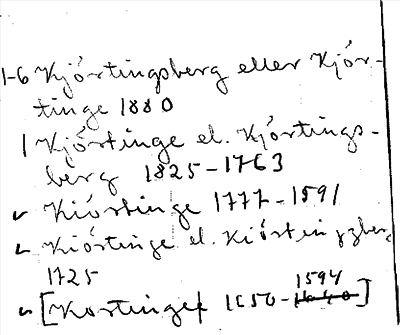 1-6 Kjörtingsberg eller Kjör-
tinge 1880
1 Kjörtinge el. Kjörtings-
berg 1825-1763
Kiörtinge 1777-1591
Kiörtinge el. Kiörtingzberg
1725
1594
[Kortinge 1650-1640]